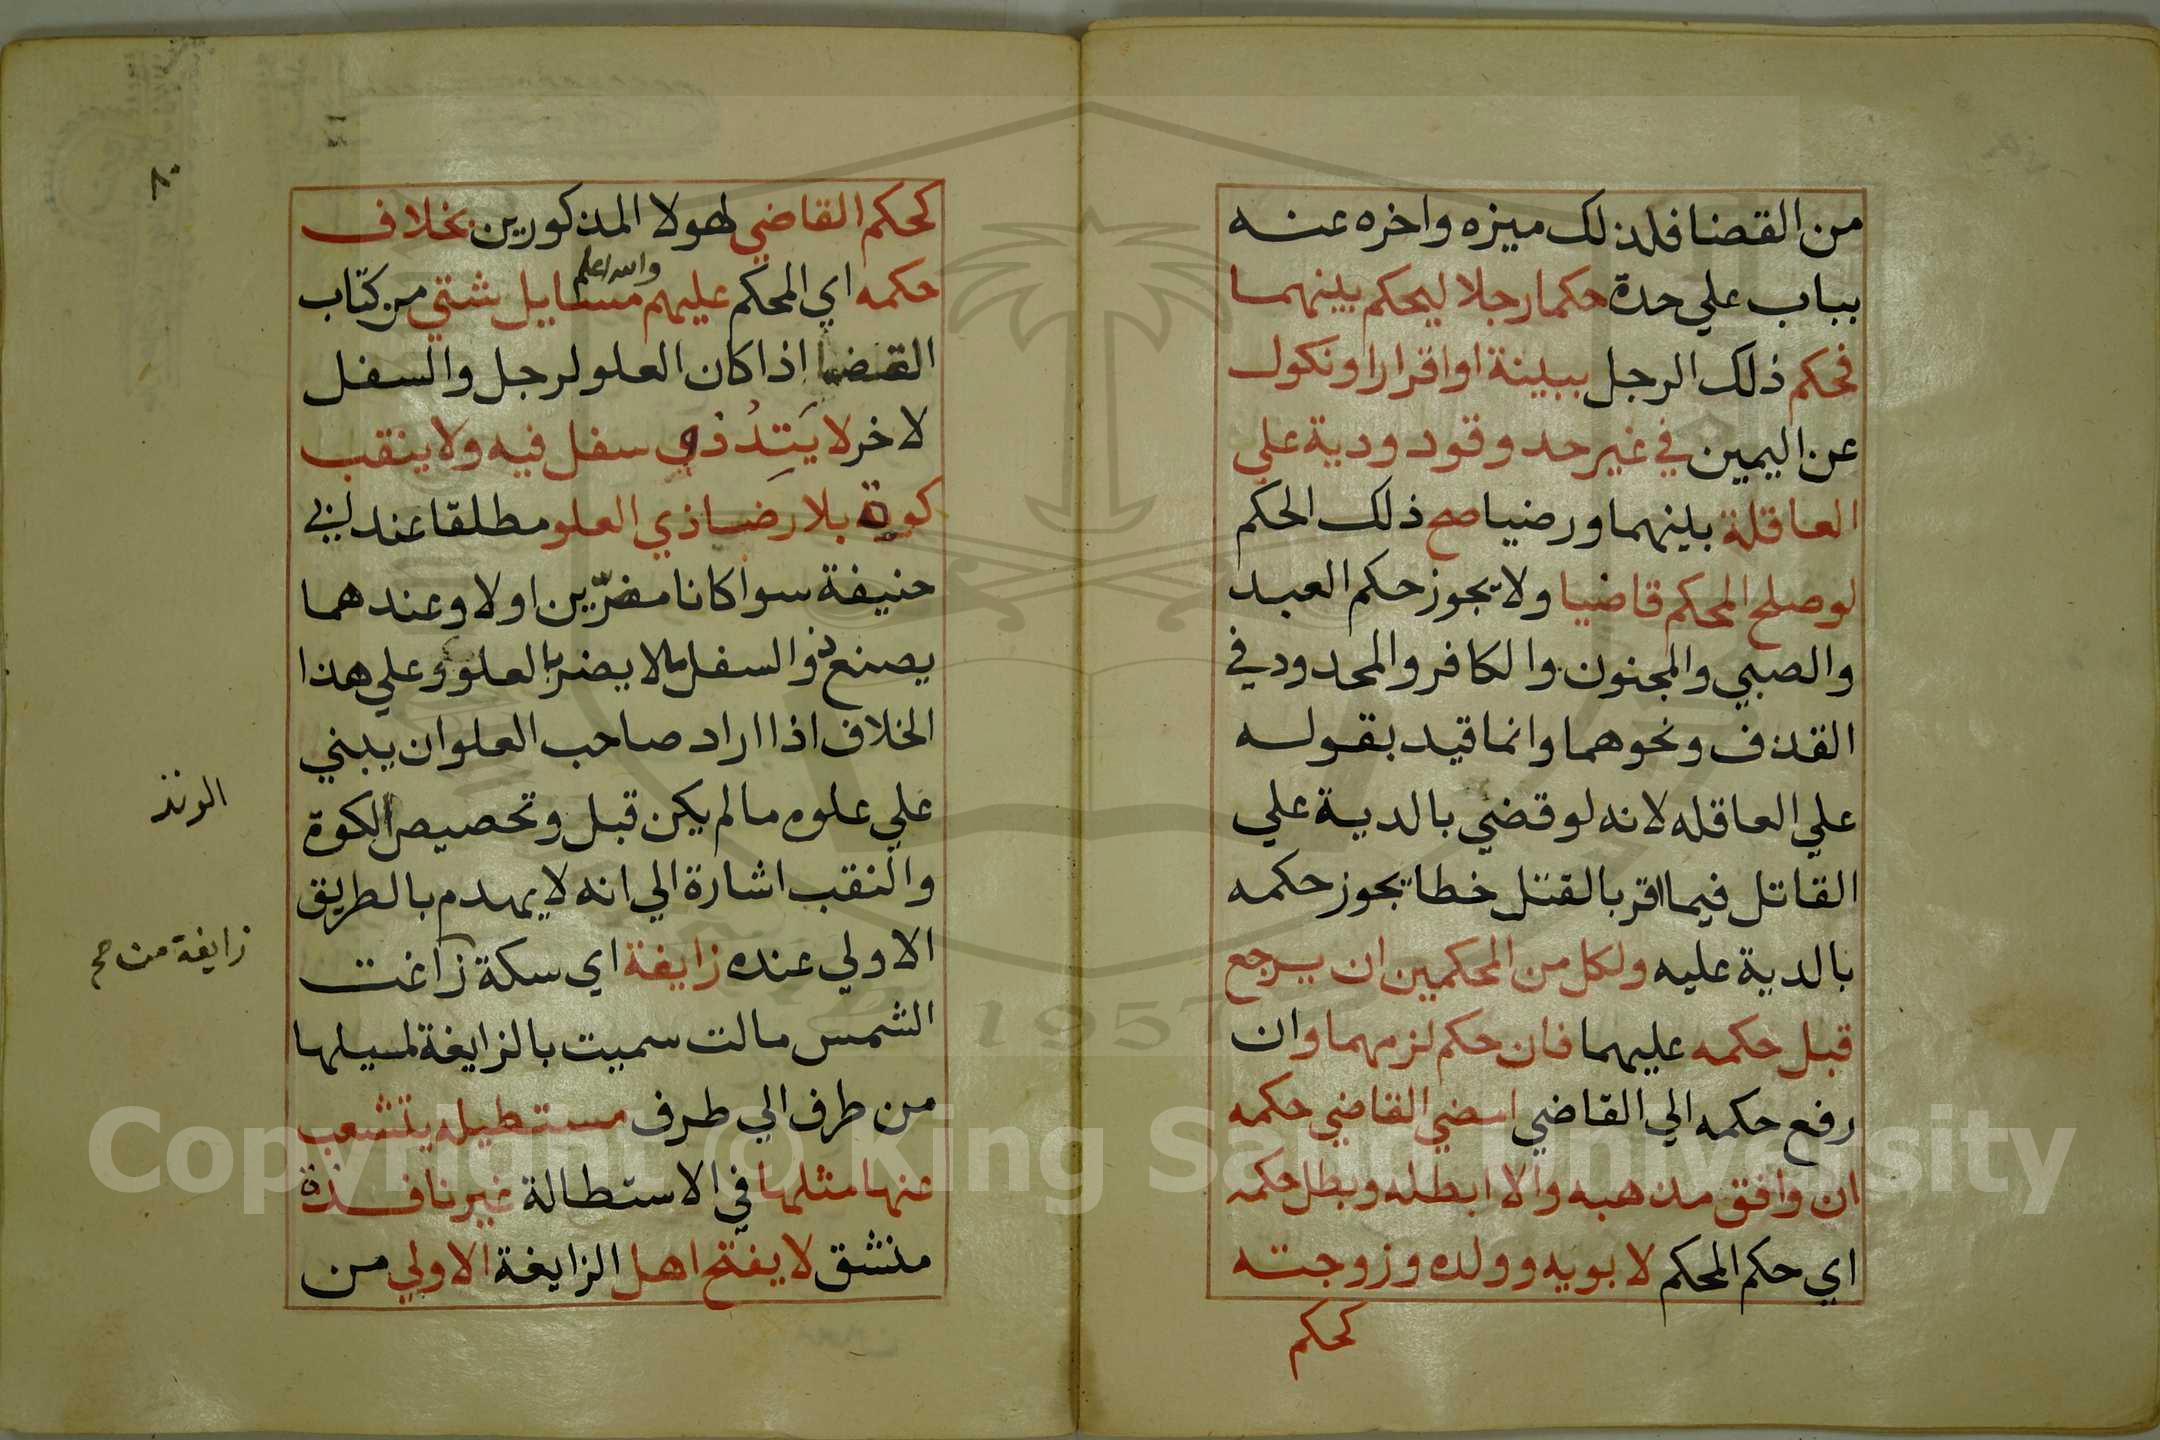 من القضا فلذلك ميزه واخره عنه
بباب علي حدة حكما رجلا ليحكم بينهما
فحكم ذلك الرجل ببينة او اقرار او نكول
عن اليمين في غير حد وقود ودية علي
العاقلة بينهما ورضيا صح ذلك الحكم
لو صلح المحكم قاضيا ولا يجوز حكم العبد
والصبي والمجنون والكافر والمحدود في
القذف ونحوهما وانما قيد بقوله
علي العاقله لانه لو قضي بالدية علي
القاتل فيما اقر بالقتل خطا يجوز حكمه
بالدية عليه ولكل من المحكمين ان يرجع
قبل حكمه عليهما فان حكم لزمهما وان
رفع حكمه الي القاضي امضي القاضي حكمه
ان وافق مذهبه والا ابطله وبطل حكمه
اي حكم المحكم لابويه وولده وزوجته
كحكم
٨٠
كحكم القاضي لهولا المذكورين بخلاف
حكمه اي المحكم عليهم والله اعلم مسايل شتي من كتاب
القضا اذا كان العلو لرجل والسفل
لاخر لا يَتِدُ ذي سفل فيه ولا ينقب
كوة بلا رضا ذي العلو مطلقا عند ابي
حنيفة سوا كانا مضرّين او لا وعندهما
يصنع ذو السفل ما لا يضر بالعلو وعلي هذا
الخلاف اذا اراد صاحب العلو ان يبني
علي علوه ما لم يكن قبل وتخصيص الكوة
والنقب اشارة الي انه لا يهدم بالطريق
الاولي عنده زايغة اي سكة زاغت
الشمس مالت سميت بالزايغة لميلها
من طرف الي طرف مستطيله يتشعب
عنها مثلها في الاستطالة غير نافذة
منشق لا يفتح اهل الزايغة الاولي من
زايغة من صح
1957
Copyright © King Saud University